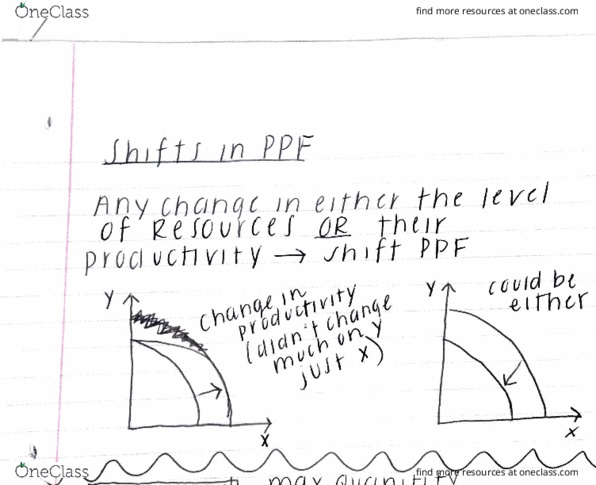 OneClass
find more resources at oneclass.com
Shifts in PPF
Any change in either the level
of Resources OR their
productivity → shift PPF
Y
change in
productivity
(didn't change
much on y
just x)
X
Y
could be
either
X
OneClass
find more resources at oneclass.com
max quantity